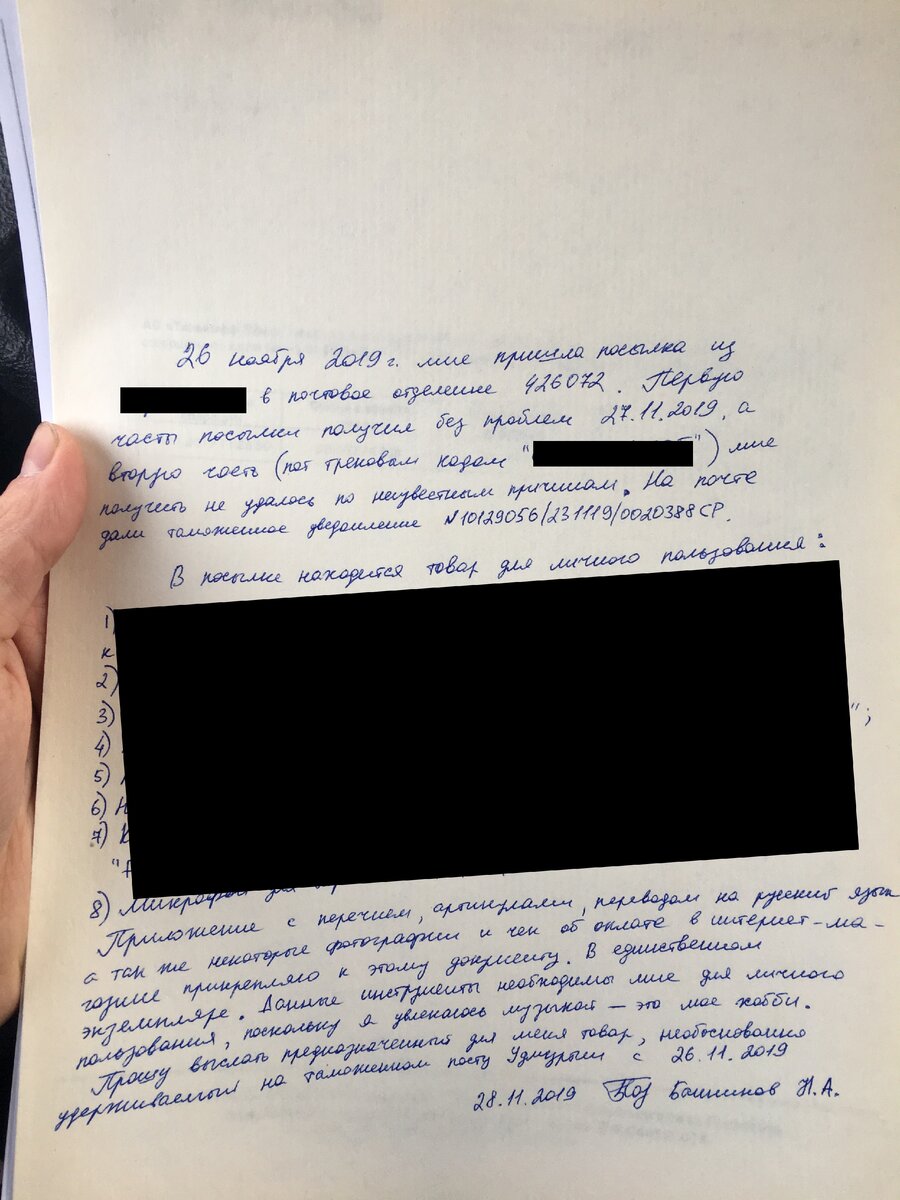 26 ноября 2019 г. мне пришла посылка из
в почтовое отделение 426072. Первую
часть посылки получил без проблем 27.11.2019, а
вторую часть (пот трековым кодам "") мне
получить не удалось по неизвестным причинам. На почте
дали таможенное уведомление №10129056/231119/0020388СР.
В посылке находится товар для личного пользования:
1)
к
2)
3) ";
4)
5)
6) Н
7) К
"
8) Микрофон для
Приложение с перечнем, артикулами, переводом на русский язык
а так же некоторые фотографии и чек об оплате в интернет-ма-
газине прикрепляю к этому документу. В единственном
экземпляре. Данные инструменты необходимы мне для личного
пользования, поскольку я увлекаюсь музыкой – это мое хобби.
Прошу выслать предназначенный для меня товар, необоснованно
удерживаемый на таможенном посту Удмуртии с 26.11.2019
28.11.2019 Н.А.